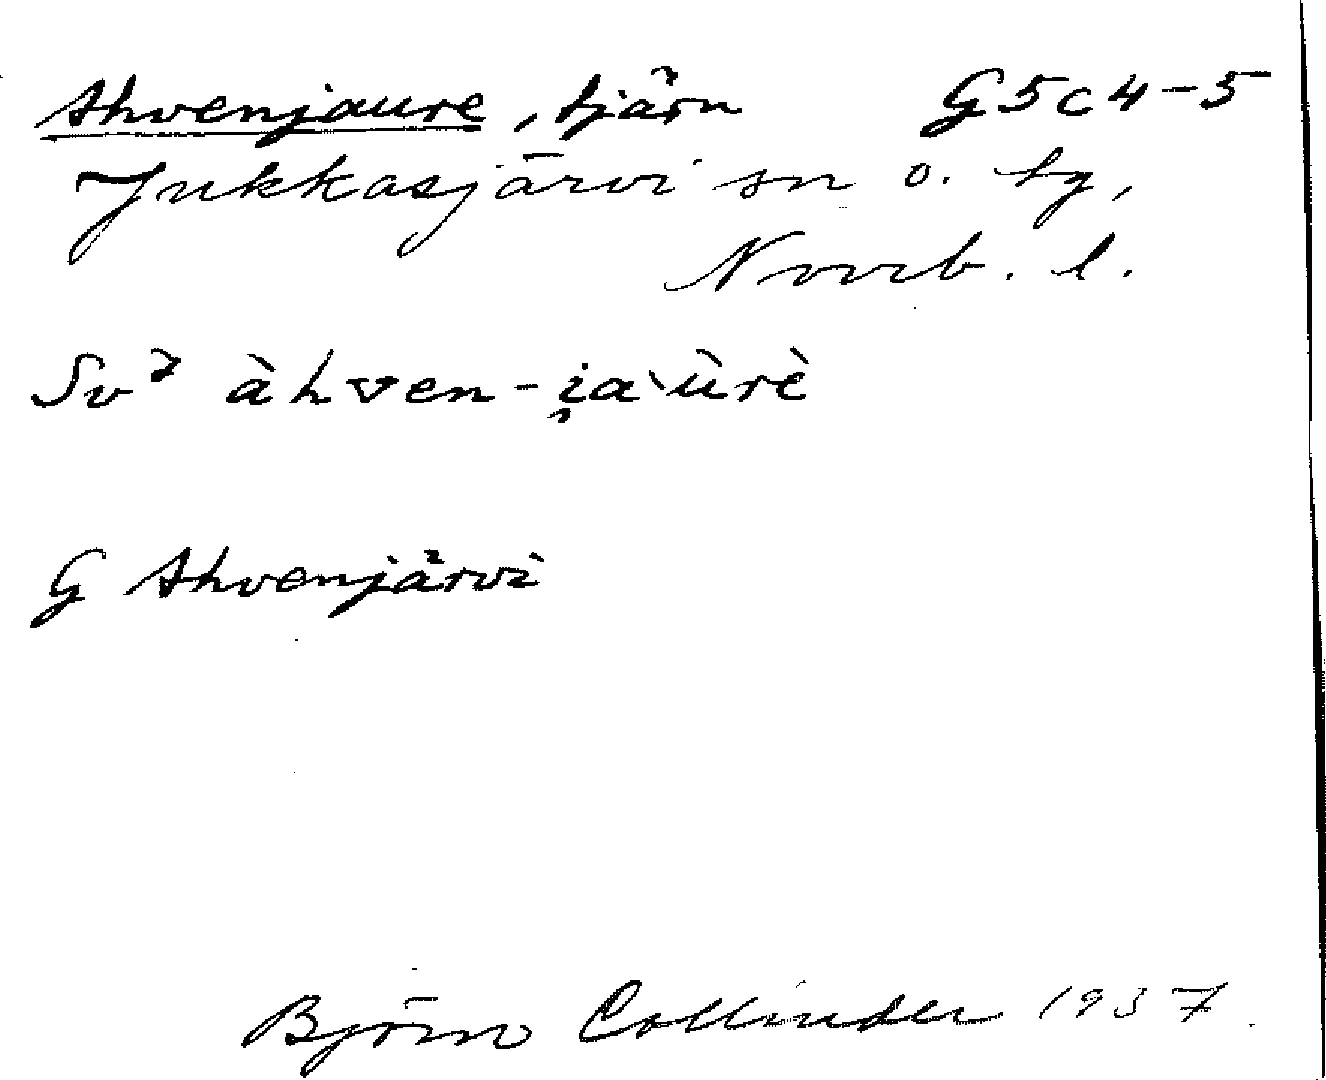 Ahvenjaure, tjärn G5c4-5
Jukkasjärvi sn o. tg,
Norrb. l.
Sv² àhven-i̯a`ùrè
G Ahvenjärvi
Björn Collinder 1937.